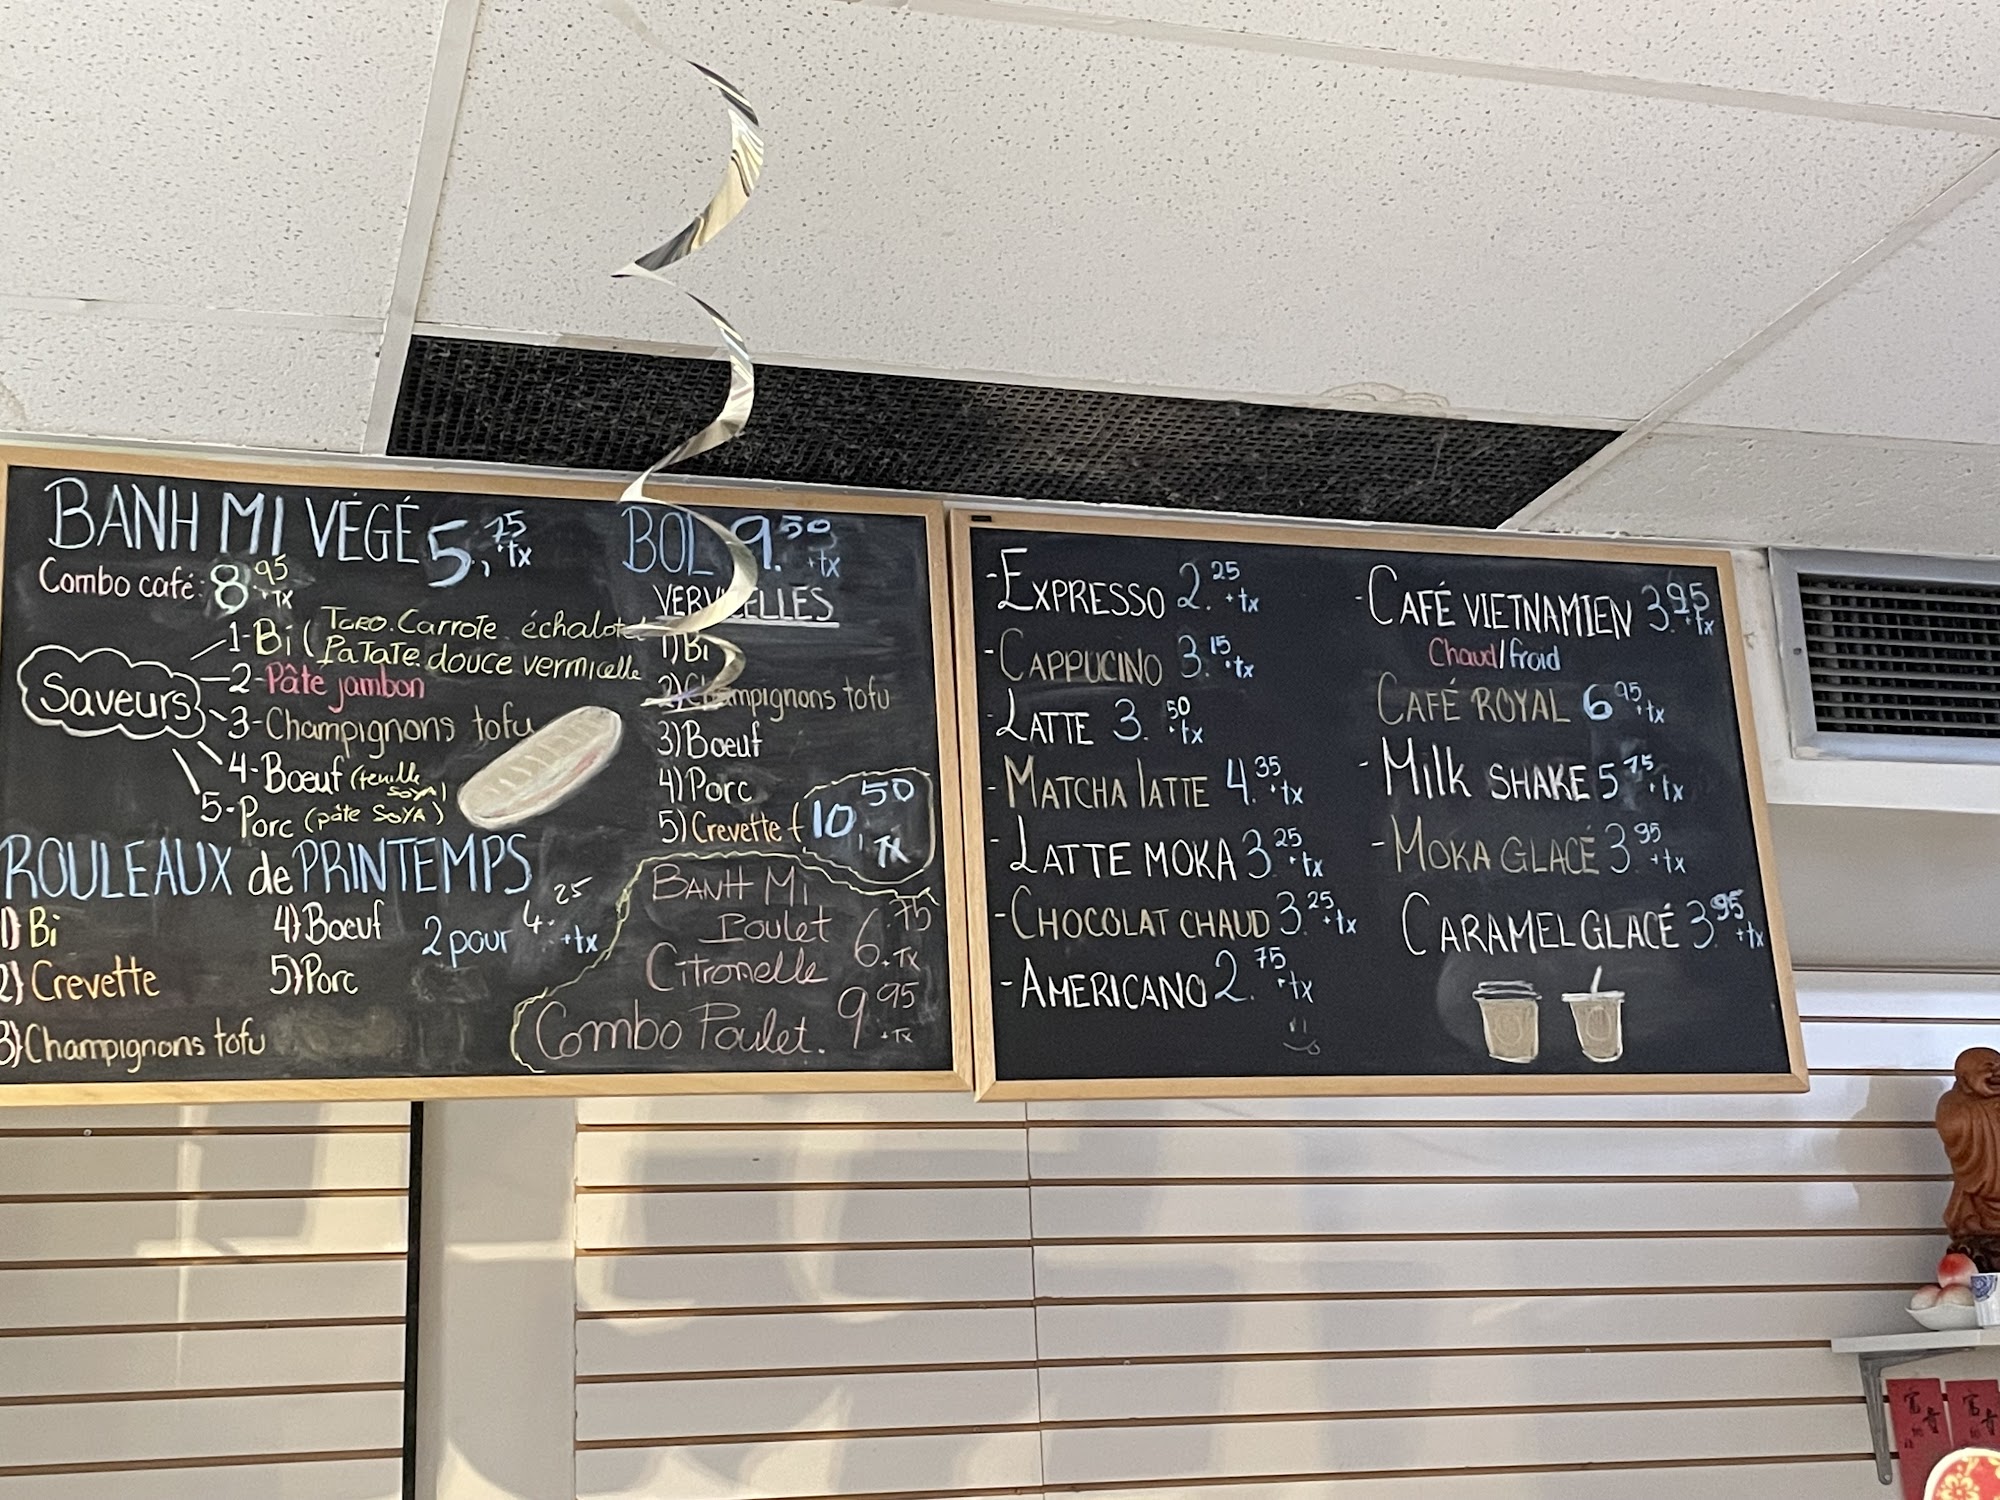 BANH MI VÉGÉ 5.75 +tx
Combo café: 8.95 +TX
Saveurs
1-Bi (TARO. Carrote. échalote
Patate. douce vermicelle
2-Pâte jambon
3-Champignons tofu
4-Boeuf (feuille SOYA)
5-Porc (pâte SOYA)
ROULEAUX de PRINTEMPS
1) Bi
2) Crevette
3) Champignons tofu
4) Boeuf
5) Porc
2 pour 4.25 +tx
BOL 9.50 +tx
VERMICELLES
1) Bi
2) Champignons tofu
3) Boeuf
4) Porc
5) Crevette 10.50 +TX
BANH MI
Poulet
Citronelle 6.75 +TX
Combo Poulet. 9.95 +TX
-EXPRESSO 2.25 +tx
-CAPPUCINO 3.15 +tx
-LATTE 3.50 +tx
-MATCHA LATTE 4.35 +tx
-LATTE MOKA 3.25 +tx
-CHOCOLAT CHAUD 3.25 +tx
-AMERICANO 2.75 +tx
-CAFÉ VIETNAMIEN 3.95 +tx
Chaud/froid
CAFÉ ROYAL 6.95 +tx
-Milk SHAKE 5.75 +tx
-MOKA GLACÉ 3.95 +tx
CARAMEL GLACÉ 3.95 +tx
富貴
富貴